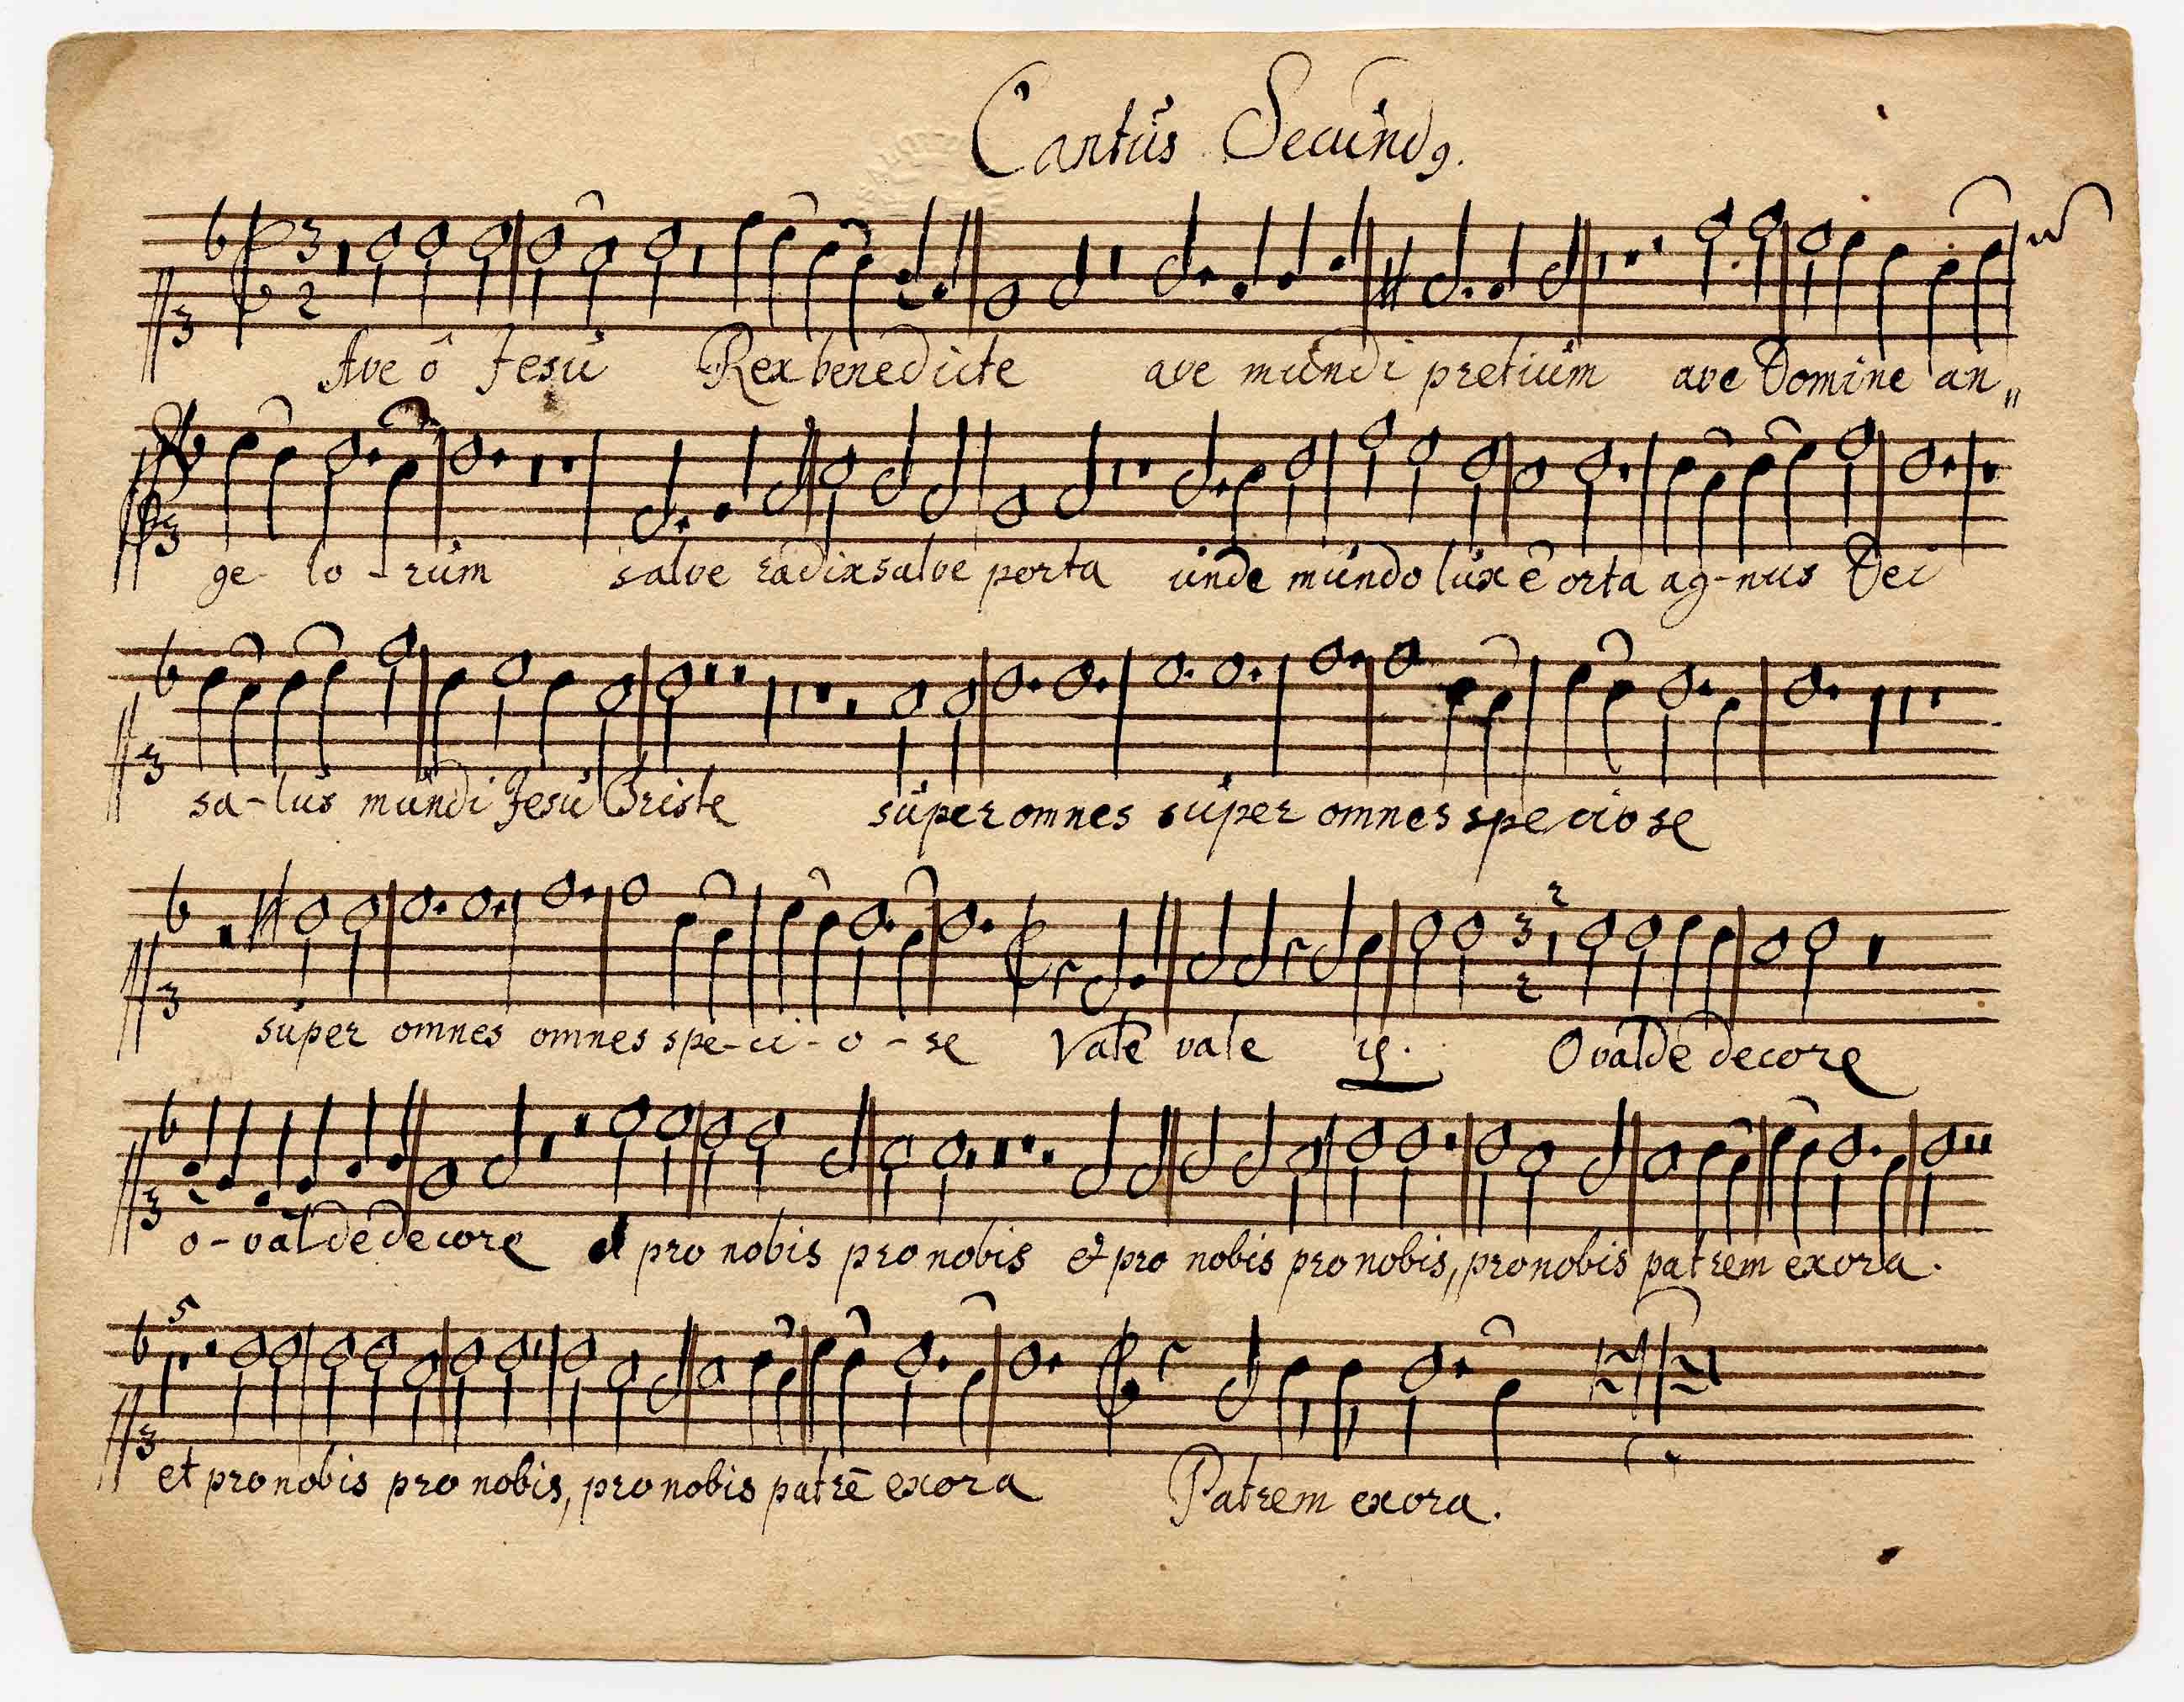 Cantus Secundꝯ.
Ave ô Jesu Rex benedicte ave mundi pretium ave Domine an„
ge- lo - rum salve radix salve porta unde mundo lux ē orta ag-nus Dei
sa-lus mundi Jesu Christe super omnes super omnes speciose
super omnes omnes spe-ci-o-se Vale vale ij. O valde decore
o-valde decore et pro nobis pro nobis et pro nobis pro nobis, pro nobis patrem exora.
et pro nobis pro nobis, pro nobis patrē exora Patrem exora.